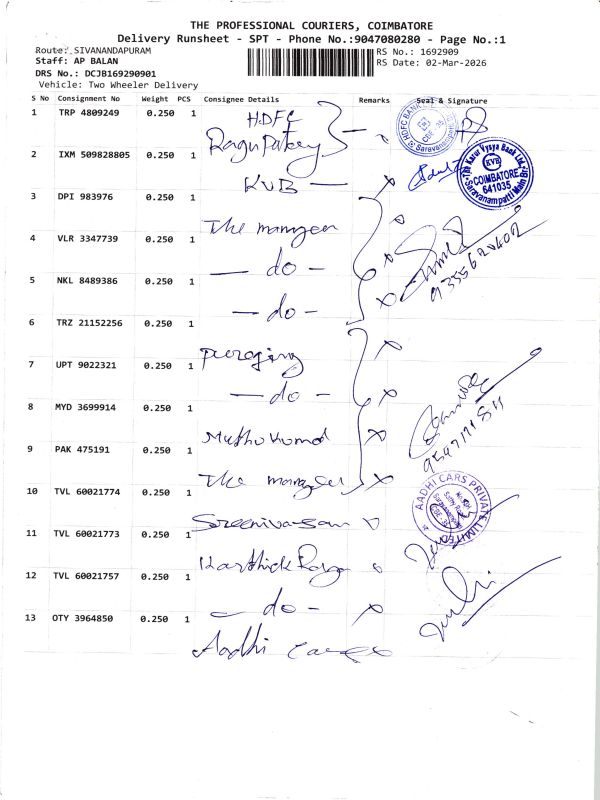 THE PROFESSIONAL COURIERS, COIMBATORE
Delivery Runsheet - SPT - Phone No.:9047080280 - Page No.:1
Route: SIVANANDAPURAM
RS No.: 1692909
Staff: AP BALAN
RS Date: 02-Mar-2026
DRS No.: DCJB169290901
Vehicle: Two Wheeler Delivery
S No Consignment No Weight PCS Consignee Details Remarks Seal & Signature
1 TRP 4809249 0.250 1 HDFC
HDFC BANK
Saravanampatti
2 IXM 509828805 0.250 1
KVB
The Karur Vysya Bank Ltd.
KVB
COIMBATORE
641035
Saravanampatti Main Br.
3 DPI 983976 0.250 1
The manager
4 VLR 3347739 0.250 1
- do -
5 NKL 8489386 0.250 1
- do -
6 TRZ 21152256 0.250 1
7 UPT 9022321 0.250 1
- do -
8 MYD 3699914 0.250 1
9 PAK 475191 0.250 1
The manager
10 TVL 60021774 0.250 1
AADHI CARS PRIVATE LIMITED
Sreenivasan
11 TVL 60021773 0.250 1
Karthick Raja
12 TVL 60021757 0.250 1
- do -
13 OTY 3964850 0.250 1
Aadhi Cars